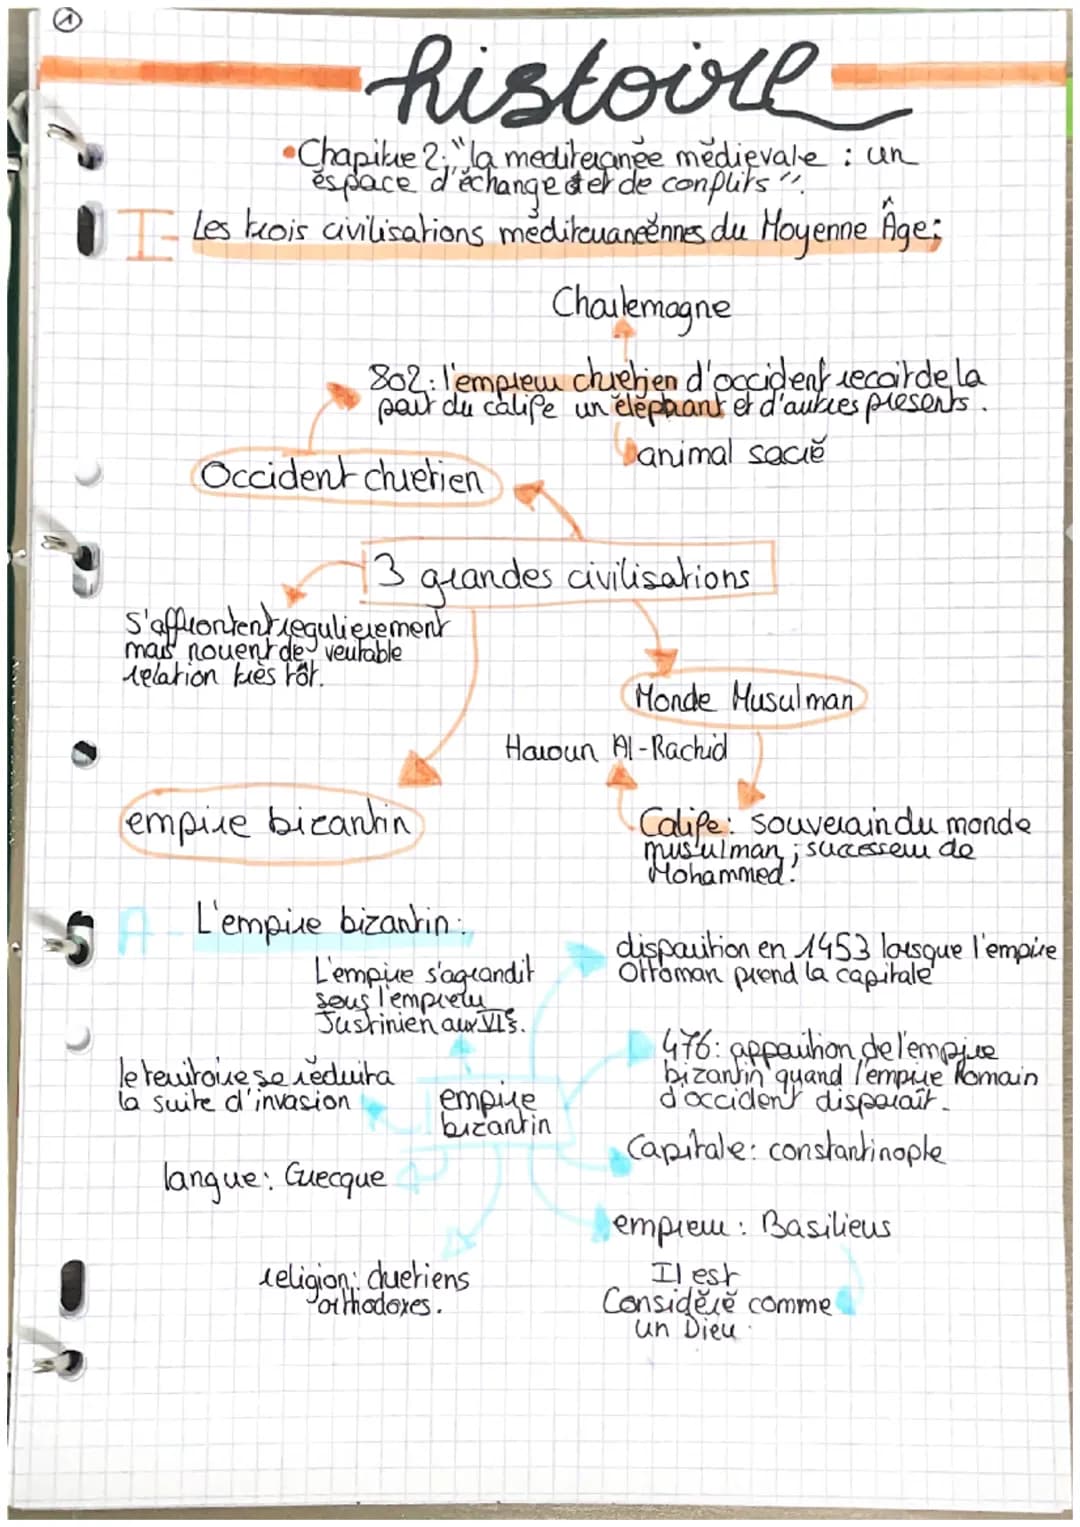 1
histoire
• Chapitre 2: "la mediteranée médievale : un
éspace d'échange et de conflits".
I- Les trois civilisations méditerranéénnes du Moyenne Âge:
Charlemagne
802: l'empreur chretien d'occident recoit de la
part du calife un éléphant et d'autres présents.
animal sacré
Occident chretien
3 grandes civilisations
S'affrontent regulierement
mais nouent de veritable
relation très tôt.
Monde Musulman
Haroun Al-Rachid
empire bizantin
Calife: souverain du monde
musulman ; successeur de
Mohammed.
A- L'empire bizantin:
disparition en 1453 lorsque l'empire
Ottoman prend la capitale
L'empire s'agrandit
sous l'empreur
Justinien aux VIs.
476: apparition de l'empire
bizantin quand l'empire Romain
d'occident disparaît.
le territoire se réduira
la suite d'invasion
empire
bizantin
Capitale: constantinople
langue: Grecque
empreur: Basilieus
religion: chretiens
orthodoxes.
Il est
Considéré comme
un Dieu